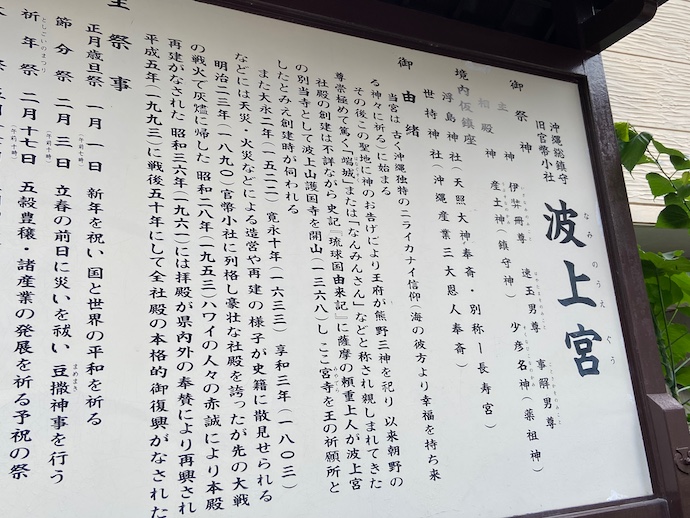 沖縄総鎮守
旧官幣小社
波上宮
なみのうえぐう
御祭神
主神 伊弉冊尊 速玉男尊 事解男尊
相殿神 産土神(鎮守神) 少彦名神(薬祖神)
境内仮鎮座
浮島神社(天照大神奉斎・別称ー長寿宮)
世持神社(沖縄産業三大恩人奉斎)
御由緒
当宮は古く沖縄独特のニライカナイ信仰(海の彼方より幸福を持ち来
る神々に祈る)に始まる
その後この聖地に神のお告げにより王府が熊野三神を祀り 以来朝野の
尊崇極めて篤く「端城」または「なんみんさん」などと称され親しまれてきた
社殿の創建は不詳ながら史記『琉球国由来記』に薩摩の頼重上人が波上宮
の別当寺として波上山護国寺を開山(一三六八)し ここ宮寺を王の祈願所と
したとみえ創建時が伺われる
また大永二年(一五二二) 寛永十年(一六三三) 享和三年(一八〇三)
などには天災・火災などによる造営や再建の様子が史籍に散見せられる
明治二三年(一八九〇)官幣小社に列格し豪壮な社殿を誇ったが先の大戦
の戦火で灰燼に帰した 昭和二八年(一九五三)ハワイの人々の赤誠により本殿
再建がなされた 昭和三六年(一九六一)には拝殿が県内外の奉賛により再興され
平成五年(一九九三)に戦後五十年にして全社殿の本格的御復興がなされた
主祭事
正月歳旦祭 一月一日(午前十時) 新年を祝い国と世界の平和を祈る
節分祭 二月三日(午前十時) 立春の前日に災いを祓い豆撒神事を行う
まめまき
祈年祭 二月十七日(午前十時) 五穀豊穣・諸産業の発展を祈る予祝の祭
としごいのまつり